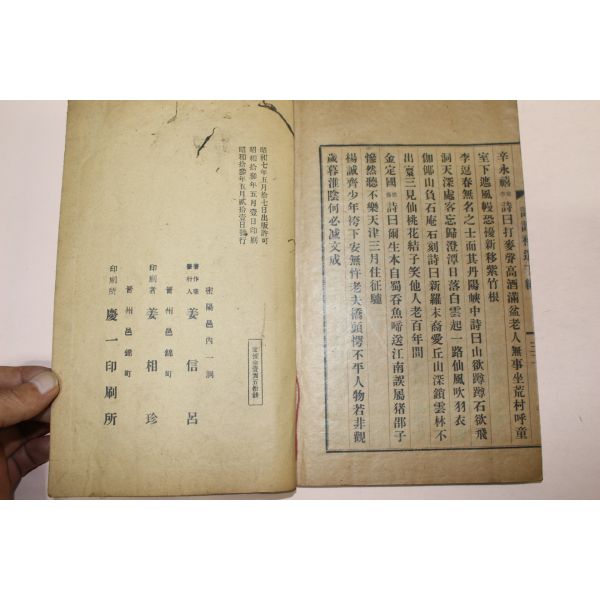 辛永禧詩曰打麥聲高酒滿盆老人無事坐荒村呼童
室下遮風幔恐擾新移紫竹根
李逗春無名之士而其丹陽峽中詩曰山欲蹲蹲石欲飛
洞天深處客忘歸澄潭日落白雲起一路仙風吹羽衣
伽倻山負石庵石刻詩曰新羅末裔愛丘山深鎖雲林不
出寰三見仙桃花結子笑他人老百年間
金定國詩曰爾生本自蜀呑魚啼送江南誤屬猪邵子
慘然聽不樂天津三月住征驢
楊誠齊少年袴下安無忤老夫橋頭愕不平人物若非觀
歲暮淮陰何必减文成
昭和七年五月拾七日出版許可
昭和拾參年五月壹日印刷
昭和拾參年五月貳拾壹日發行
密陽邑內一洞
著作兼發行人 姜信呂
晋州邑錦町
印刷者 姜相珍
晋州邑錦町
印刷所 慶一印刷所